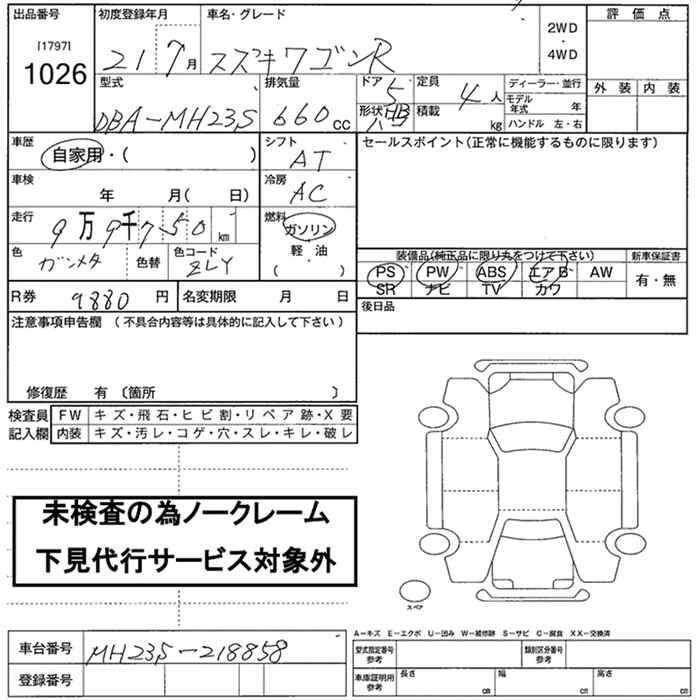 出品番号 初度登録年月 車名・グレード 2WD・4WD 評価点
[1797]
1026 21 7月 スズキワゴンR
型式 排気量 ドア 5 定員 4人 ディーラー・並行 外装 内装
DBA-MH23S 660cc 形状 HB 積載 kg モデル年式 年
ハンドル 左・右
車歴 自家用・( ) シフト AT セールスポイント(正常に機能するものに限ります)
車検 年 月( 日) 冷房 AC
走行 9万9千750km 燃料 ガソリン
軽・油
( )
色 ガンメタ 色替 色コード ZLY
装備品(純正品に限り丸をつけて下さい) 新車保証書
PS PW ABS エアB AW 有・無
SR ナビ TV カワ
R券 9880円 名変期限 月 日 後日品
注意事項申告欄(不具合内容等は具体的に記入して下さい)
修復歴 有〔箇所 〕
検査員記入欄 FW キズ・飛石・ヒビ割・リペア跡・X要
内装 キズ・汚レ・コゲ・穴・スレ・キレ・破レ
未検査の為ノークレーム
下見代行サービス対象外
スペア
A-キズ E-エクボ U-凹み W-補修跡 S-サビ C-腐食 XX-交換済
車台番号 MH23S-218858 型式指定番号参考 類別区分番号参考
登録番号 車庫証明用参考 長さ cm 幅 cm 高さ cm